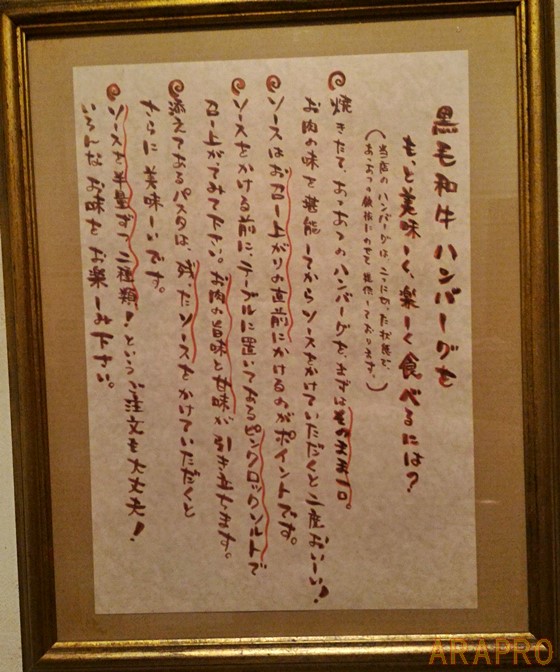 黒毛和牛ハンバーグを
もっと美味しく、楽しく食べるには?
(当店のハンバーグは
あつあつの鉄板にのせて
焼きたて、あつあつのハンバーグを、まずはそのまま一口。
お肉の味を堪能してからソースをかけていただくと二度おいしい!
ソースはお召し上がりの直前にかけるのがポイントです。
ソースをかける前にテーブルに置いてあるピンクロックソルトで
召し上がってみて下さい。お肉の旨味と甘味が
添えてあるパスタは、余ったソースをかけていただくと
さらに美味しいです。
ソースを半量ずつ二種類!というご注文も大丈夫!
いろんなお味をお楽しみ下さい。
ARAPRO